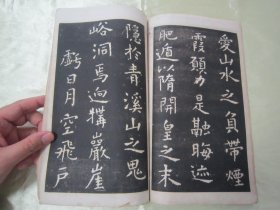 愛山水之負帶煙
霞願力是勤晦迹
肥遁以隋開皇之末
隱於青溪山之鬼
峪洞焉迥構巖崖
虧日月空飛戶